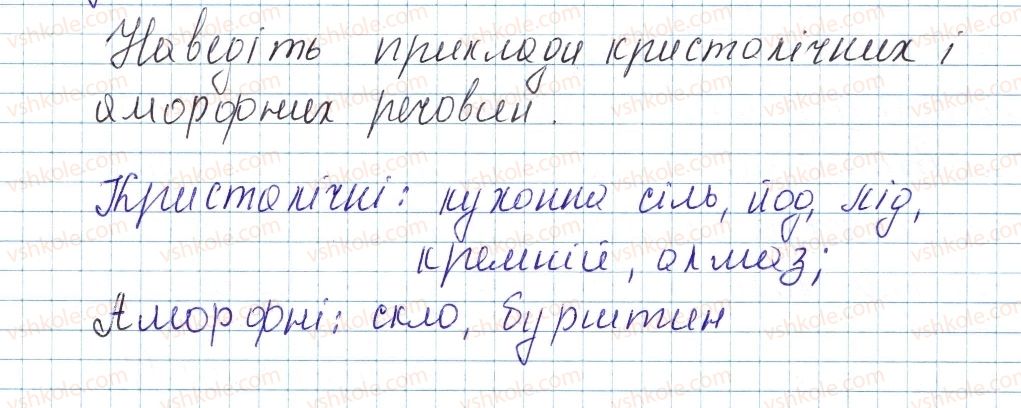 Наведіть приклади кристалічних і
аморфних речовин.
Кристалічні: кухонна сіль, йод, лід,
кремній, алмаз;
Аморфні: скло, бурштин